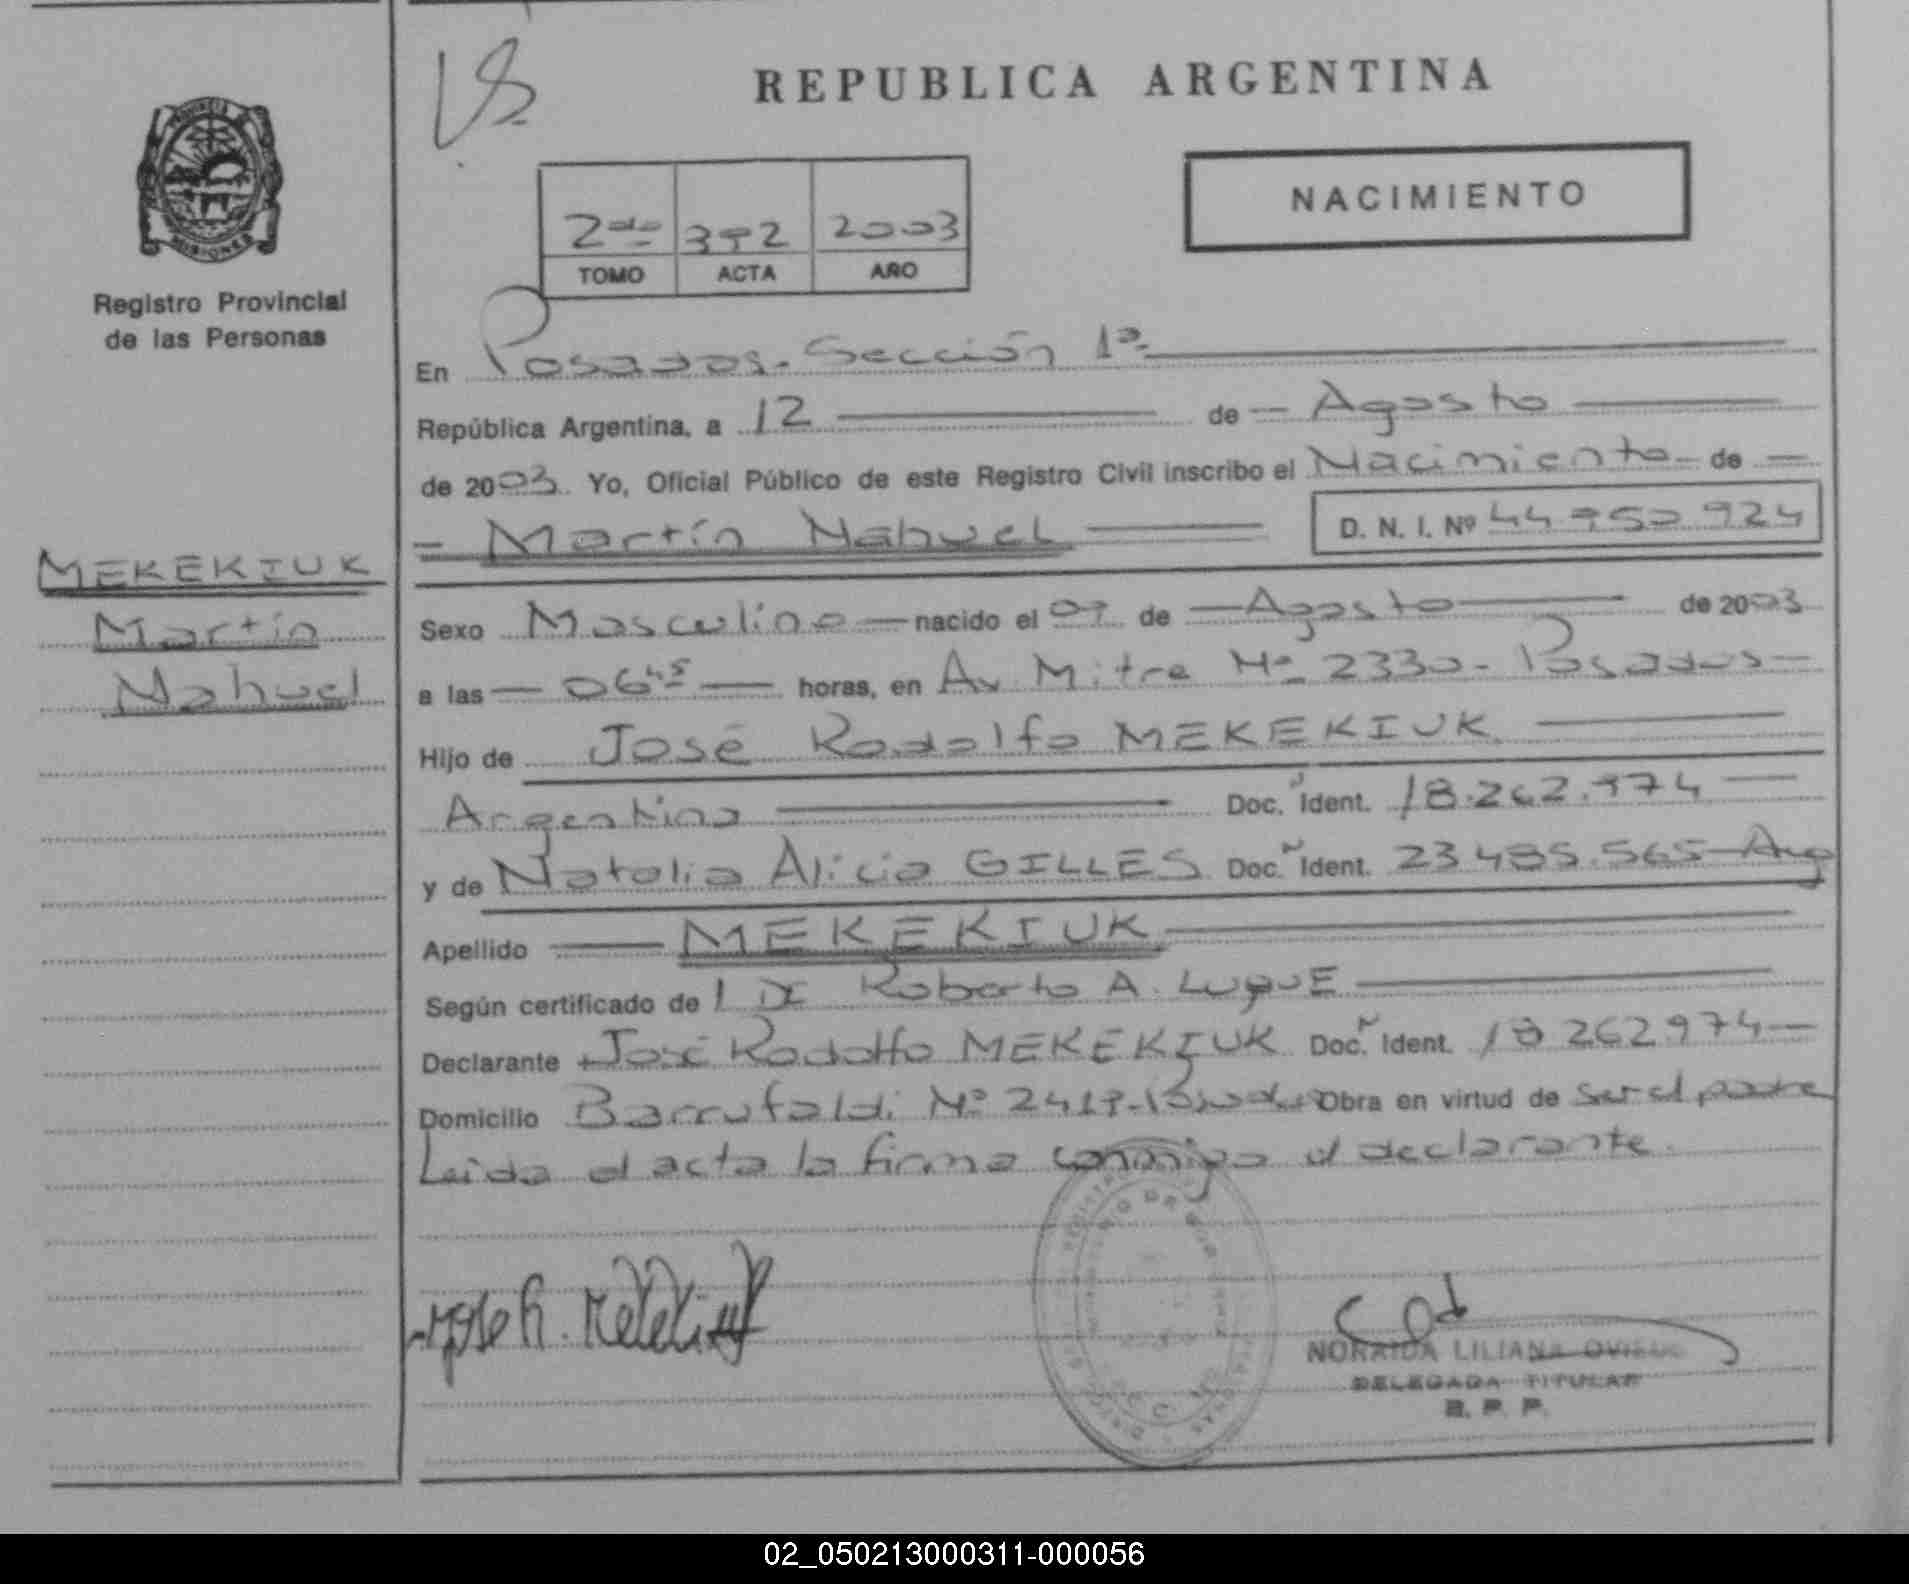 PROVINCIA DE
MISIONES
Registro Provincial
de las Personas
MEKEKIUK
Martín
Nahuel
REPUBLICA ARGENTINA
NACIMIENTO
2do 392 2003
TOMO ACTA AÑO
En Posadas - Sección 1ª
República Argentina, a 12 de Agosto
de 2003 Yo, Oficial Público de este Registro Civil inscribo el Nacimiento de
Martín Nahuel D. N. I. Nº 44.950.924
Sexo Masculino nacido el 07 de Agosto de 2003
a las 06 45 horas, en Av. Mitre Nº 2330 - Posadas
Hijo de José Rodolfo MEKEKIUK
Argentino Doc. Ident. 18.262.974
y de Natalia Alicia GILLES Doc. Ident. 23.485.565 - Arg
Apellido MEKEKIUK
Según certificado de Roberto A. LUQUE
Declarante José Rodolfo MEKEKIUK Doc. Ident. 18 262974
Domicilio Barrufaldi Nº 2419 - Posadas Obra en virtud de ser el padre
Leida el acta la firma conmigo el declarante.
NORAIDA LILIANA OVIEDO
DELEGADA TITULAR
R. P. P.
02_050213000311-000056